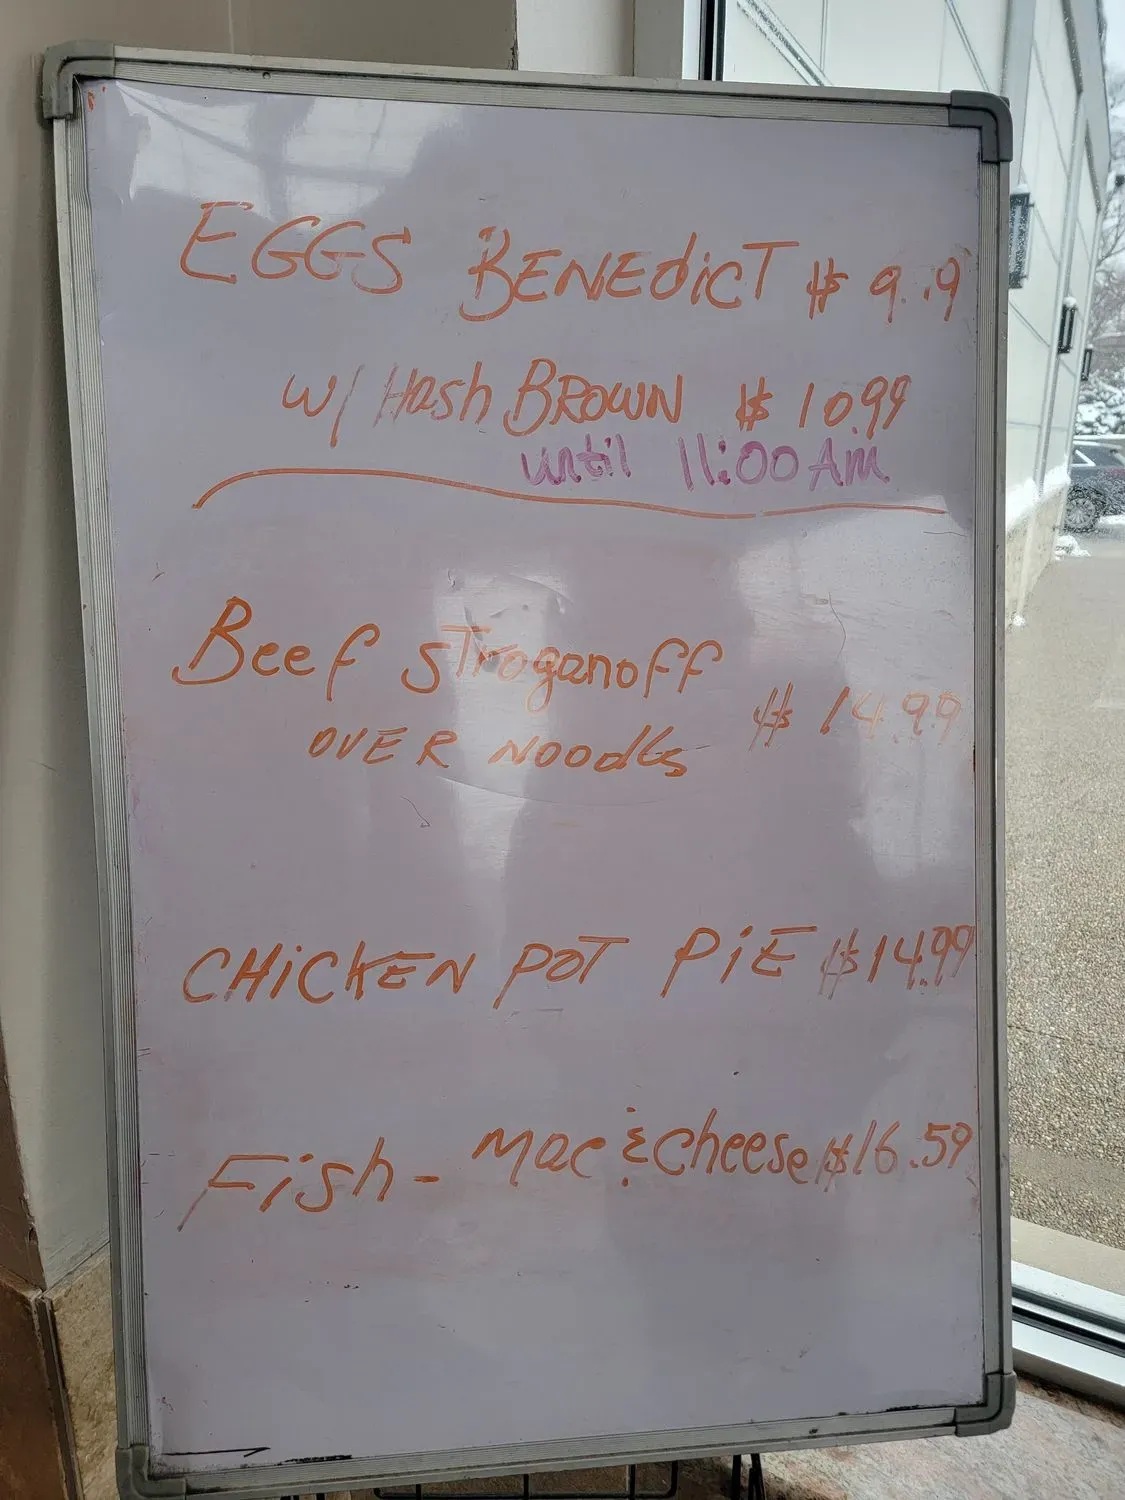 EGGS BENEdiCT $ 9.19
w/ Hash BROWN $ 10.99
until 11:00 Am
Beef sTroganoff
OVER NOOdles $ 14.99
CHiCKEN POT PiE $14.99
Fish - Mac & Cheese $16.59